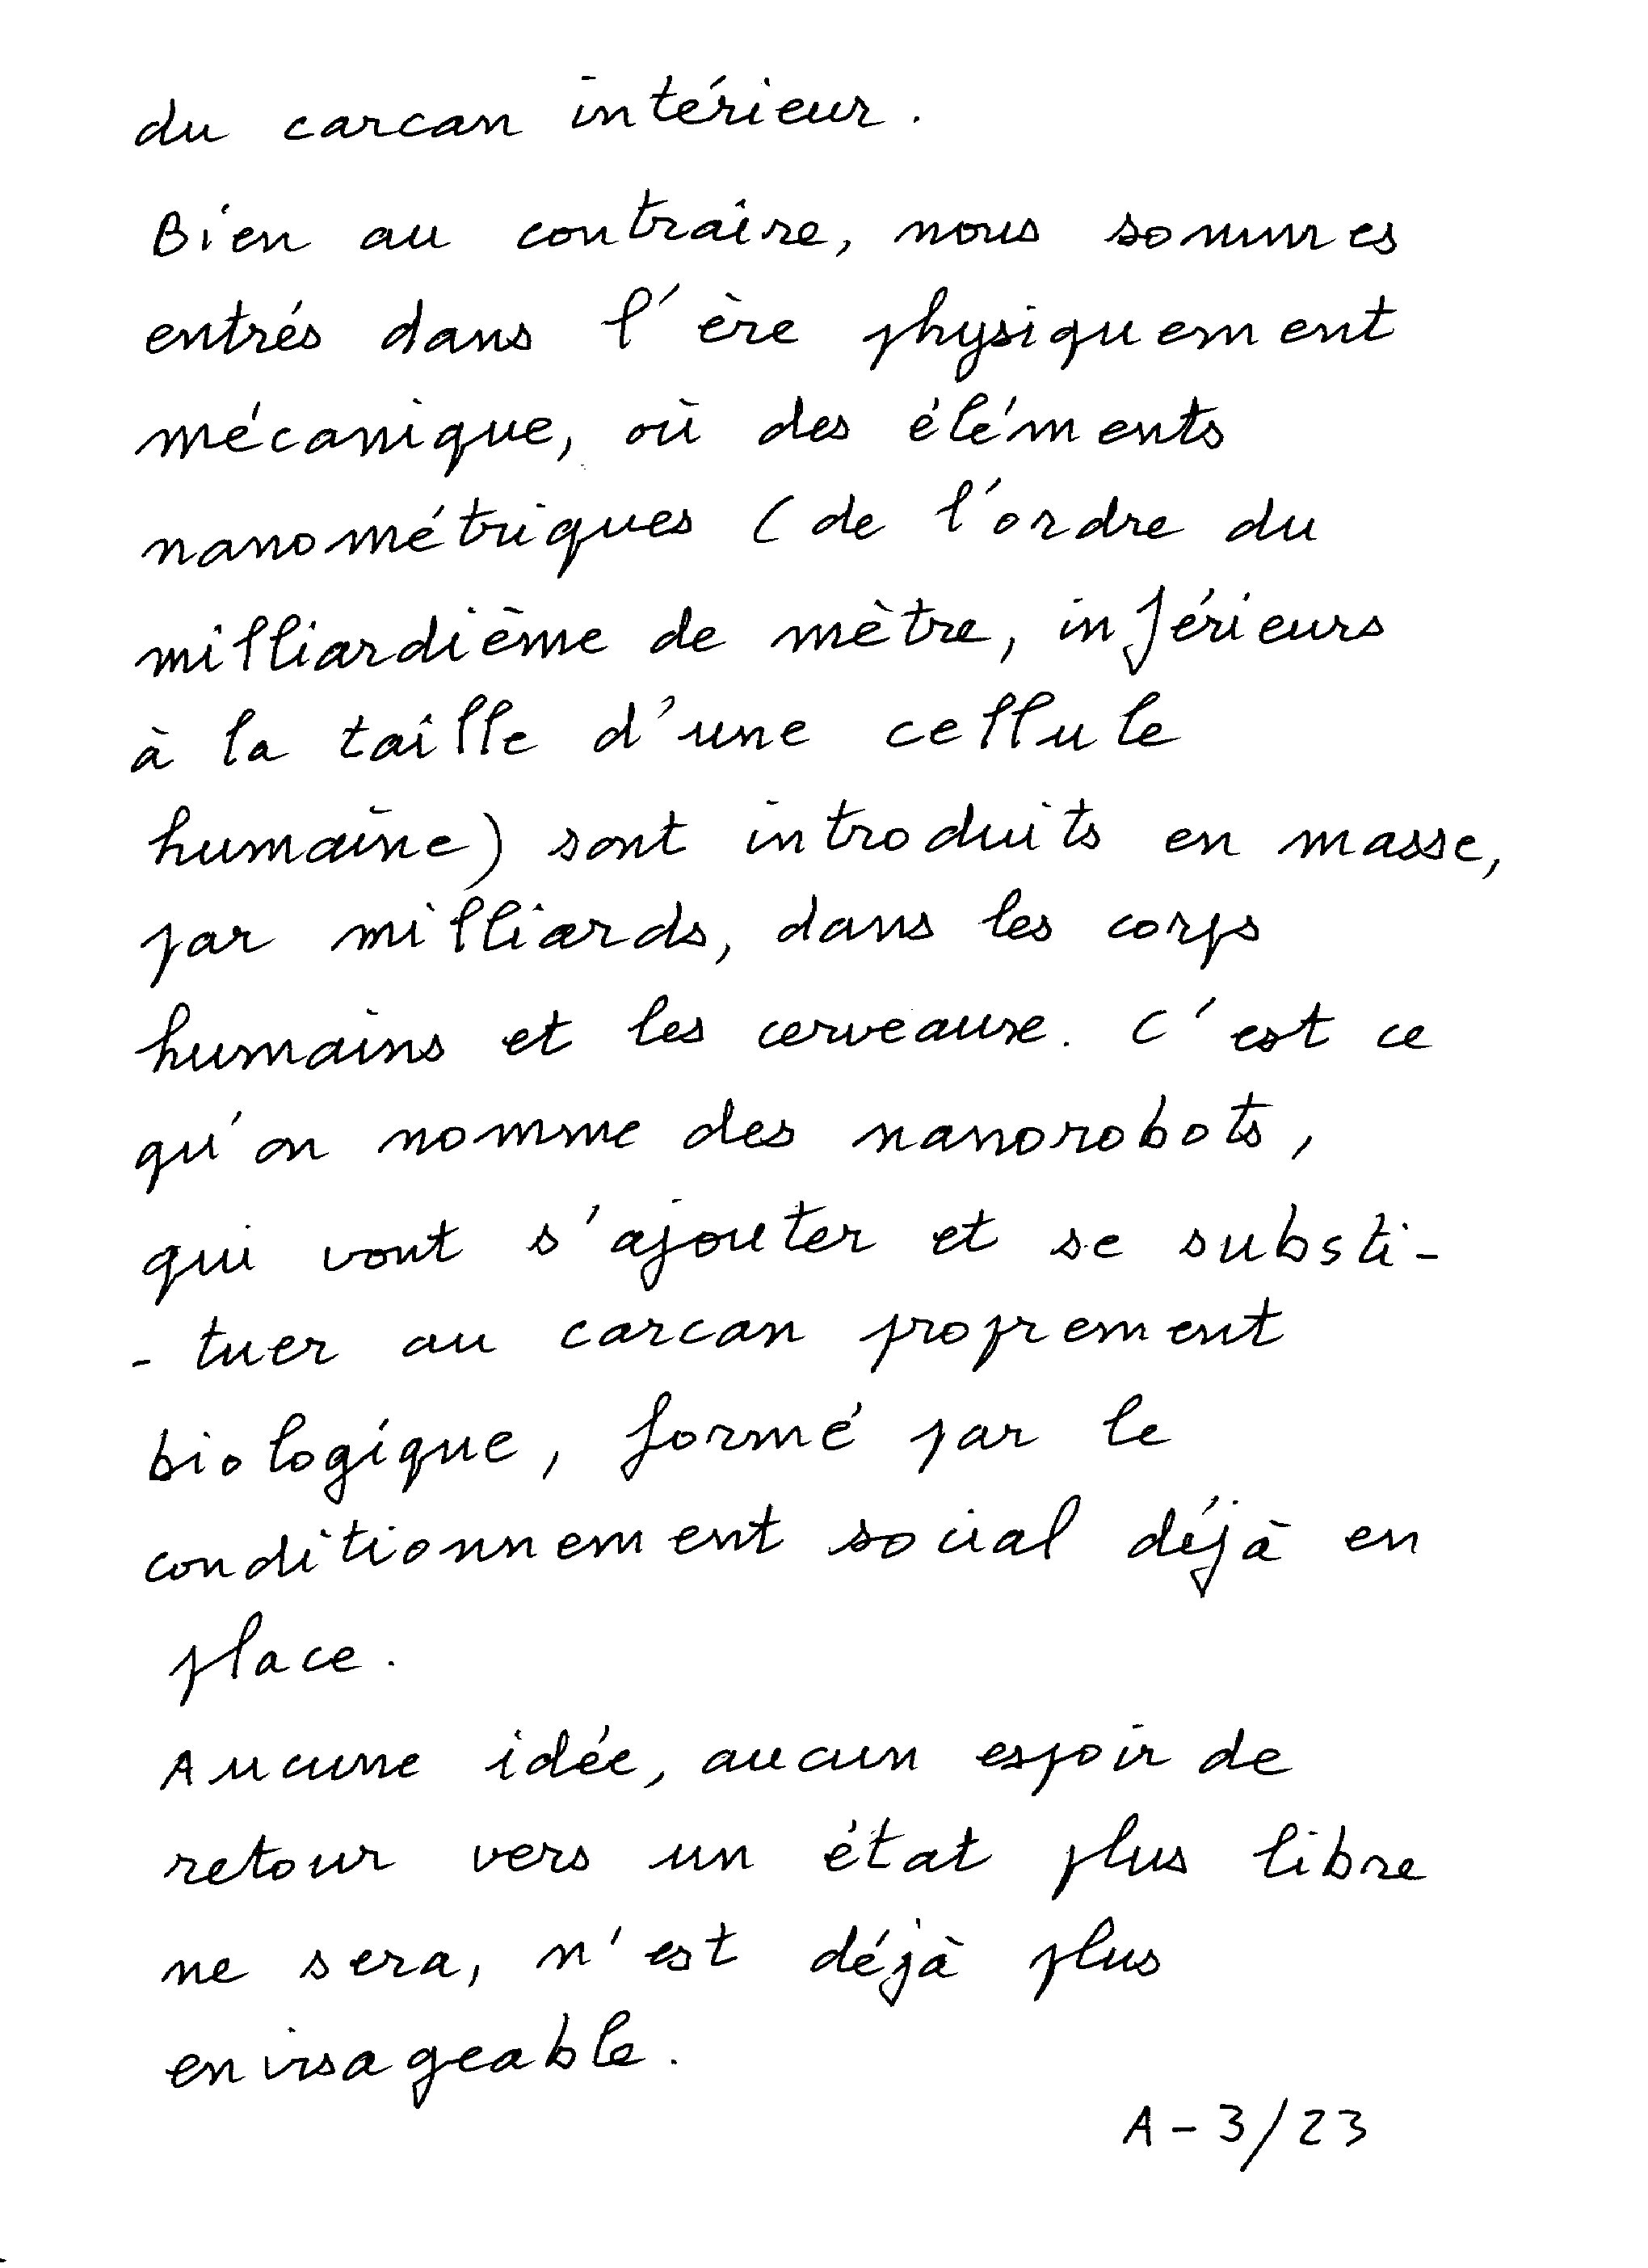 du carcan intérieur.
Bien au contraire, nous sommes
entrés dans l'ère physiquement
mécanique, où des éléments
nanométriques (de l'ordre du
milliardième de mètre, inférieurs
à la taille d'une cellule
humaine) sont introduits en masse,
par milliards, dans les corps
humains et les cerveaux. C'est ce
qu'on nomme des nanorobots,
qui vont s'ajouter et se substi-
- tuer au carcan proprement
biologique, formé par le
conditionnement social déjà en
place.
Aucune idée, aucun espoir de
retour vers un état plus libre
ne sera, n'est déjà plus
envisageable.
A-3/23